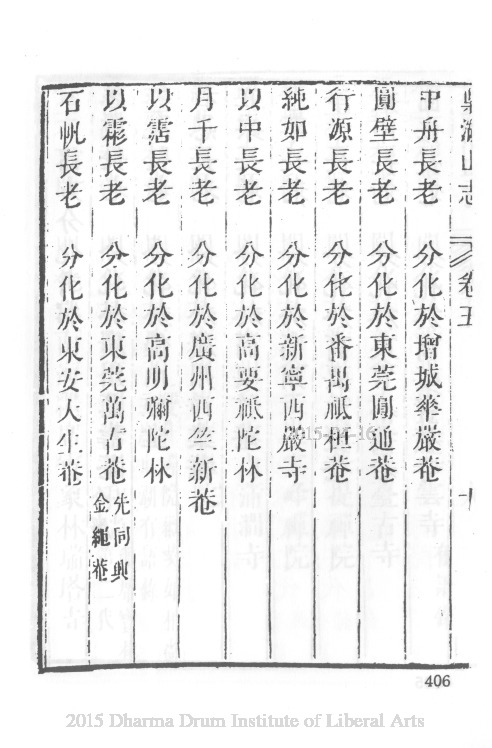 鼎湖山志 卷五 十
中舟長老 分化於增城華嚴菴
圓壁長老 分化於東莞圓通菴
行源長老 分化於番禺祗桓菴
純如長老 分化於新寧西嚴寺
以中長老 分化於高要祗陀林
月千長老 分化於廣州西竺新菴
以霑長老 分化於高明彌陀林
以霦長老 分化於東莞萬古菴 先同興
金繩菴
石帆長老 分化於東安人生菴
406
2015 Dharma Drum Institute of Liberal Arts